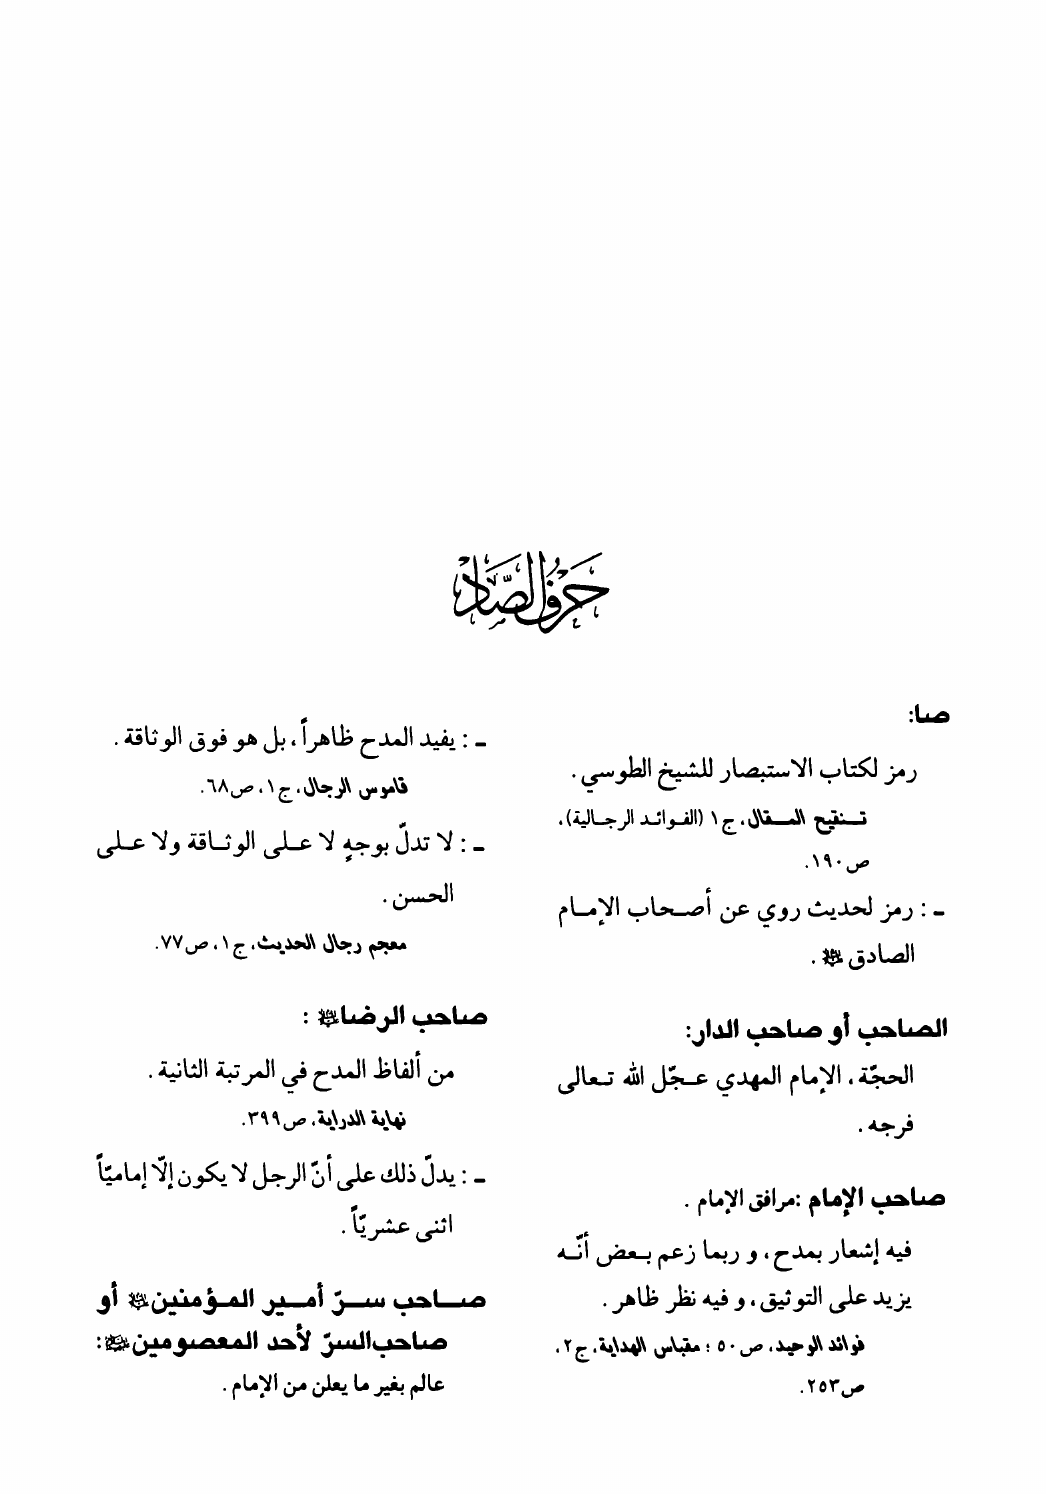 حرف الصّاد
صا:
رمز لكتاب الاستبصار للشيخ الطوسي .
تـنقيح المـقال، ج١ (الفـوائـد الرجـالية)،
ص١٩٠.
ـ : رمز لحديث روي عن أصـحاب الإمـام
الصادق ﷷ .
الصاحب أو صاحب الدار:
الحجّة ، الإمام المهدي عـجّل الله تـعالى
فرجه .
صاحب الإمام :مرافق الإمام .
فيه إشعار بمدح ، و ربما زعم بـعض أنّـه
يزيد على التوثيق، و فيه نظر ظاهر .
فوائد الوحيد، ص٥٠ ؛ مقباس الهداية، ج٢،
ص٢٥٣.
ـ : يفيد المدح ظاهراً ، بل هو فوق الوثاقة .
قاموس الرجال، ج١، ص٦٨.
ـ : لا تدلّ بوجهٍ لا عـلى الوثـاقة ولا عـلى
الحسن .
معجم رجال الحديث، ج١، ص٧٧.
صاحب الرضا :
من ألفاظ المدح في المرتبة الثانية .
نهاية الدراية، ص٣٩٩.
ـ : يدلّ ذلك على أنّ الرجل لا يكون إلّا إماميّاً
اثنى عشريّاً .
صـاحب سـرّ أمـير المـؤمنين أو
صاحب السرّ لأحد المعصومين:
عالم بغير ما يعلن من الإمام .